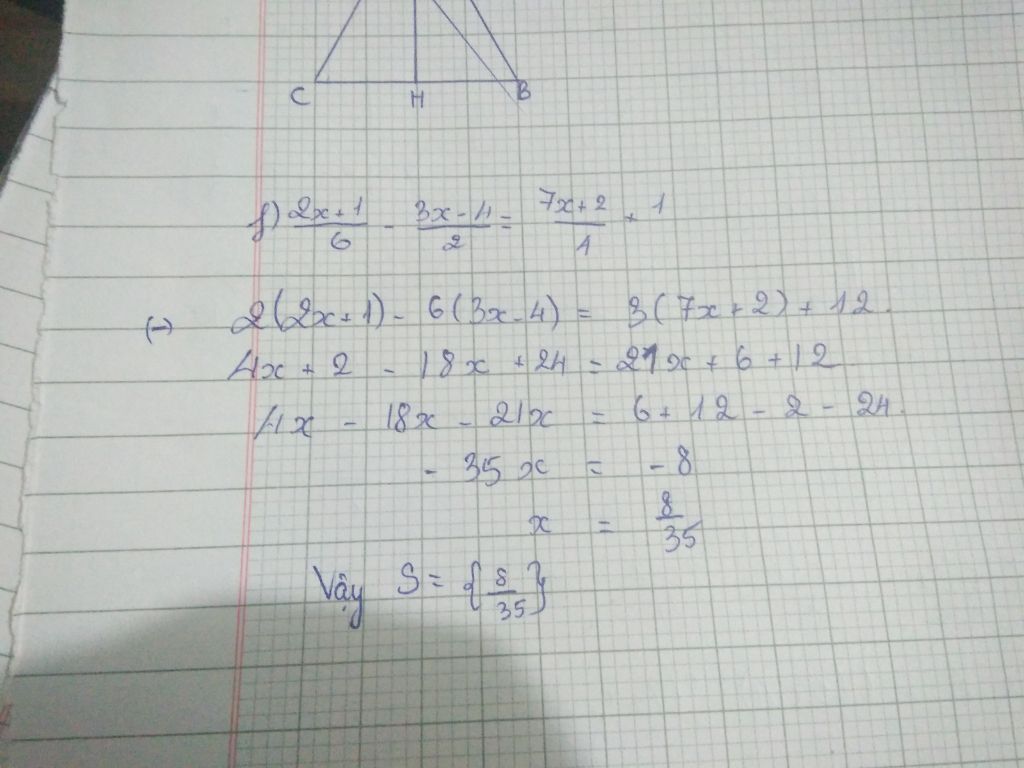 C H B
f) \frac{2x+1}{6} - \frac{3x-4}{2} = \frac{7x+2}{4} + 1
(→) 2(2x+1) - 6(3x-4) = 3(7x+2) + 12.
4x + 2 - 18x + 24 = 21x + 6 + 12
4x - 18x - 21x = 6 + 12 - 2 - 24.
- 35x = - 8
x = \frac{8}{35}
Vậy S = {\frac{8}{35}}